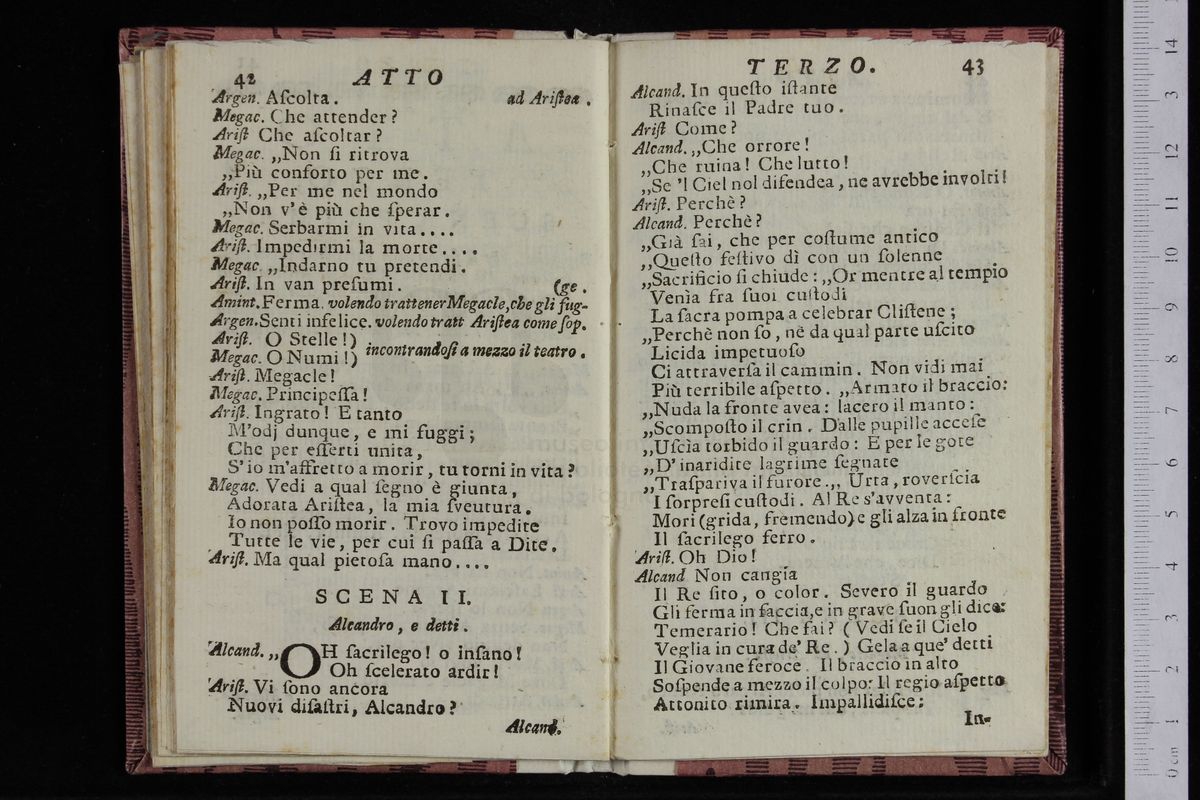 42 ATTO
Argen. Aſcolta. ad Ariſtea.
Megac. Che attender?
Ariſt Che aſcoltar?
Megac. „Non ſi ritrova
„Più conforto per me.
Ariſt. „Per me nel mondo
„Non v'è più che ſperar.
Megac. Serbarmi in vita....
Ariſt. Impedirmi la morte....
Megac „Indarno tu pretendi.
Ariſt. In van preſumi. (ge.
Amint. Ferma. volendo trattener Megacle, che gli fug-
Argen. Senti infelice. volendo tratt Ariſtea come ſop.
Ariſt. O Stelle!)
Megac. O Numi!) incontrandoſi a mezzo il teatro.
Ariſt. Megacle!
Megac. Principeſſa!
Ariſt. Ingrato! E tanto
M'odj dunque, e mi fuggi;
Che per eſſerti unita,
S'io m'affretto a morir, tu torni in vita?
Megac. Vedi a qual ſegno è giunta,
Adorata Ariſtea, la mia ſveutura.
Io non poſſo morir. Trovo impedite
Tutte le vie, per cui ſi paſſa a Dite.
Ariſt. Ma qual pietoſa mano....
SCENA II.
Alcandro, e detti.
Alcand. „OH ſacrilego! o inſano!
Oh ſcelerato ardir!
Ariſt. Vi ſono ancora
Nuovi diſaſtri, Alcandro?
Alcand.
TERZO. 43
Alcand. In queſto iſtante
Rinaſce il Padre tuo.
Ariſt Come?
Alcand. „Che orrore!
„Che ruina! Che lutto!
„Se 'l Ciel nol difendea, ne avrebbe involti!
Ariſt. Perchè?
Alcand. Perchè?
„Già ſai, che per coſtume antico
„Queſto feſtivo dì con un ſolenne
„Sacrificio ſi chiude: „Or mentre al tempio
Venìa fra ſuoi cuſtodi
La ſacra pompa a celebrar Cliſtene;
„Perchè non ſo, nè da qual parte uſcito
Licida impetuoſo
Ci attraverſa il cammin. Non vidi mai
Più terribile aſpetto. „Armato il braccio:
„Nuda la fronte avea: lacero il manto:
„Scompoſto il crin. Dalle pupille acceſe
„Uſcìa torbido il guardo: E per le gote
„D'inaridite lagrime ſegnate
„Traſpariva il furore.„ Urta, roverſcia
I ſorpreſi cuſtodi. Al Re s'avventa:
Mori (grida, fremendo) e gli alza in fronte
Il ſacrilego ferro.
Ariſt. Oh Dio!
Alcand Non cangia
Il Re ſito, o color. Severo il guardo
Gli ferma in faccia, e in grave ſuon gli dice:
Temerario! Che fai? (Vedi ſe il Cielo
Veglia in cura de' Re.) Gela a que' detti
Il Giovane feroce. Il braccio in alto
Soſpende a mezzo il colpo: Il regio aſpetto
Attonito rimira. Impallidiſce:
In-